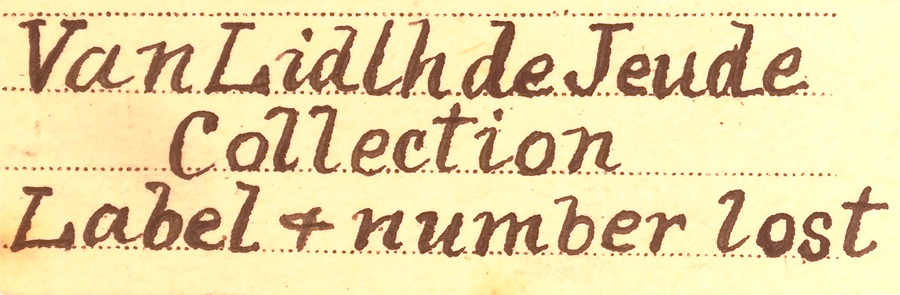 Van Lidlh de Jeude
Collection
Label + number lost